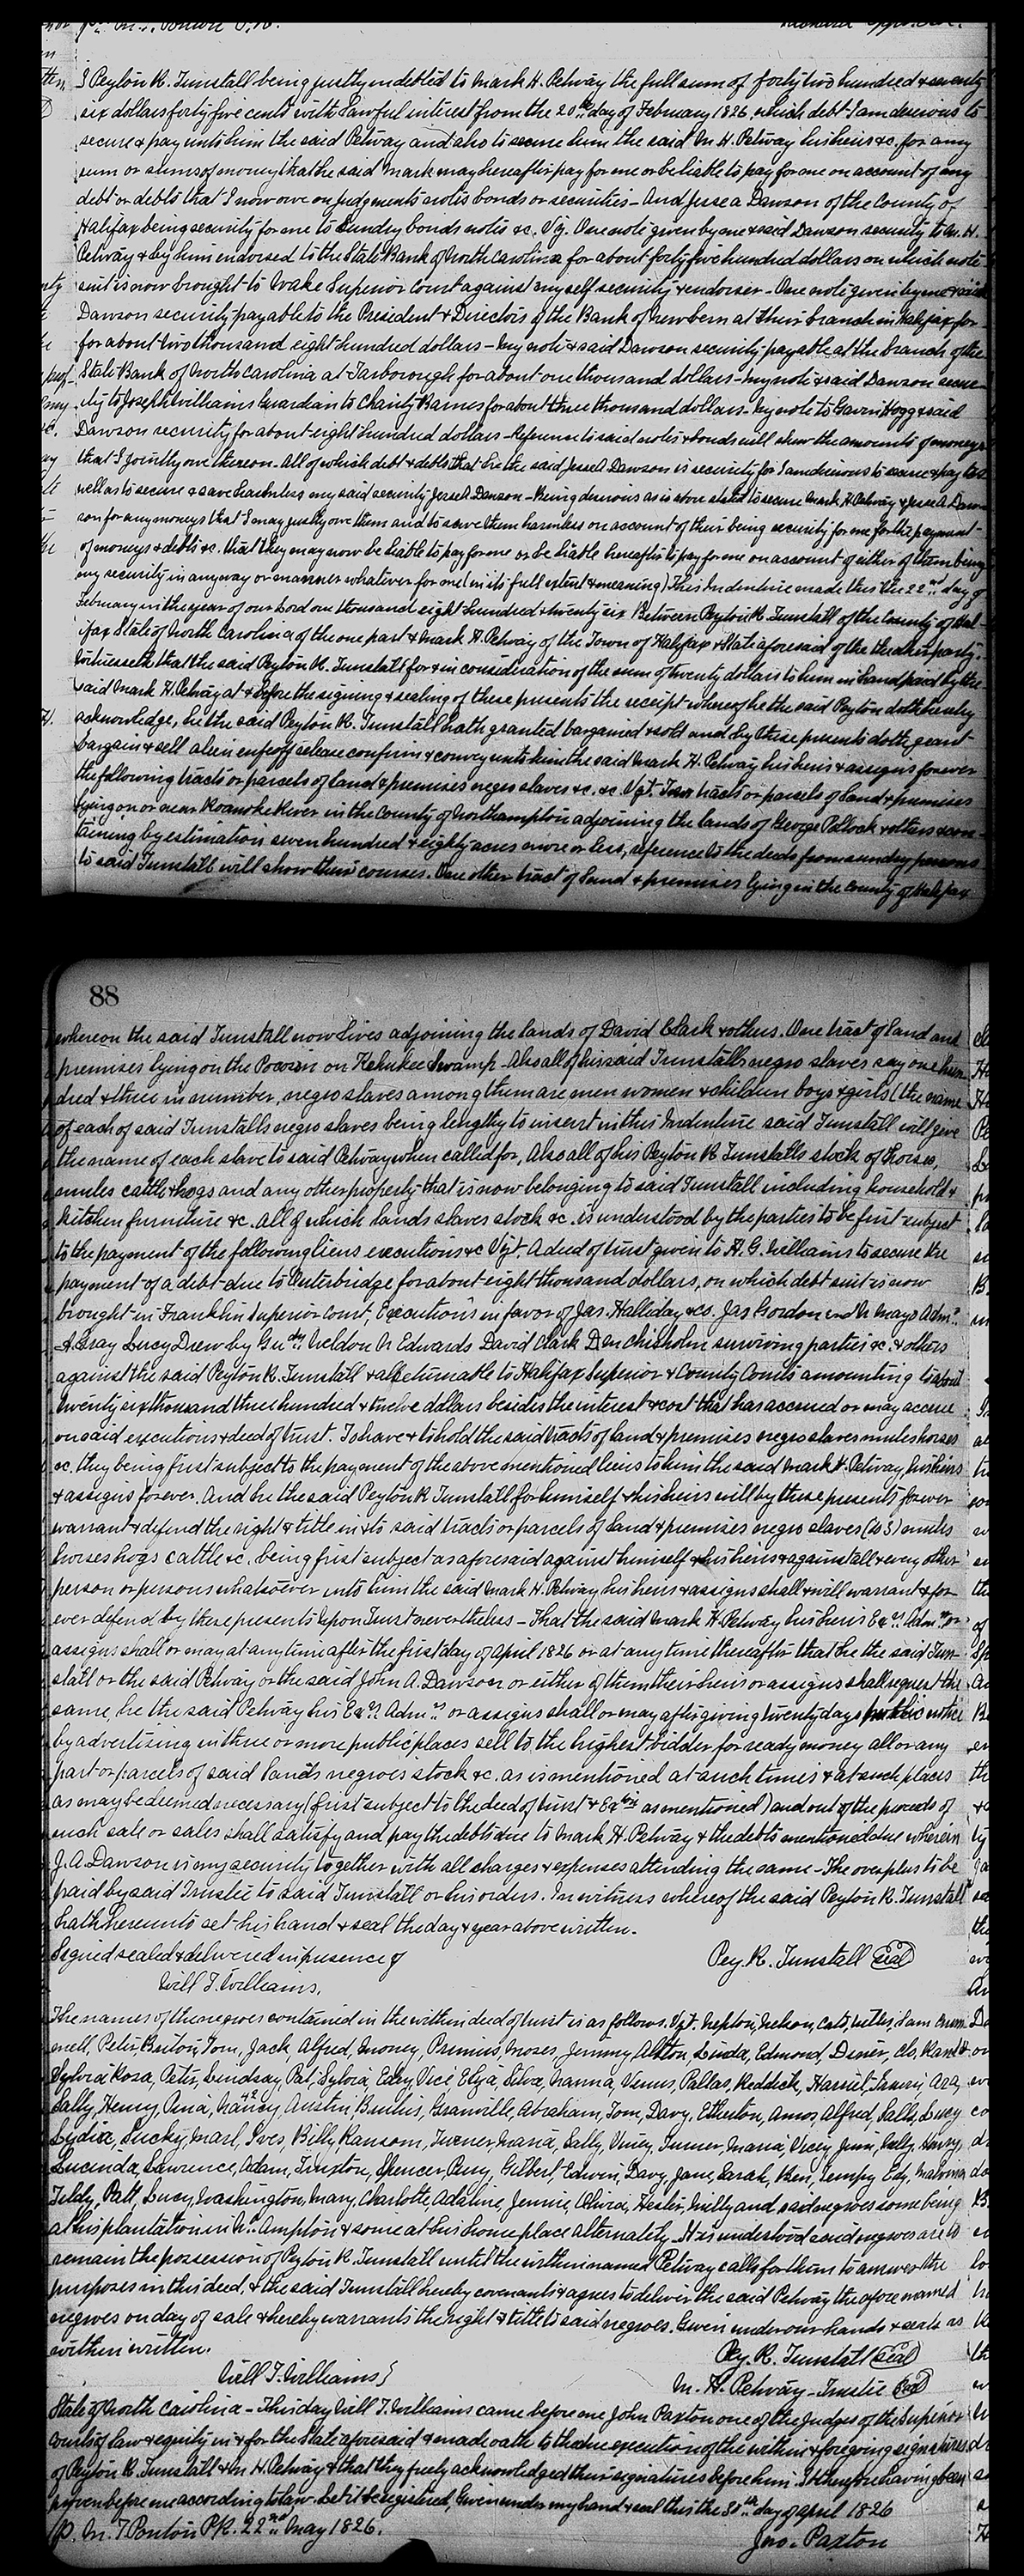 I Peyton R. Tunstall being justly indebted to Mark H. Petway the full sum of forty two hundred & seventy
six dollars forty five cents with Lawful interest from the 20th day of February 1826, which debt I am desirous to
secure & pay unto him the said Petway and also to secure him the said M. H. Petway his heirs &c. for any
sum or sums of money that he said Mark may hereafter pay for me or be liable to pay for me on account of any
debt or debts that I now owe on judgements notes bonds or securities – And Jesse A Dawson of the County of
Halifax being security for me to Sundry bonds notes &c. Viz. One note given by me & said Dawson security to M. H.
Petway & by him endorsed to the State Bank of North Carolina for about forty five hundred dollars on which note
suit is now brought to Wake Superior Court against myself security & endorser – One note given by me & said
Dawson security payable to the President & Directors of the Bank of Newbern at their branch in Halifax for
for about two thousand eight hundred dollars – My note & said Dawson security payable at the branch of the
State Bank of North Carolina at Tarborough for about one thousand dollars – My note & said Dawson secur-
ity to Joseph Williams Guardian to Charity Barnes for about three thousand dollars – My note to Gavin Hogg & said
Dawson security for about eight hundred dollars – Reference to said notes & bonds will show the amounts of moneys
that I jointly owe thereon – All of which debt & debts that he the said Jesse A Dawson is security for I am desirous to secure & pay as
well as to secure & save harmless my said security Jesse A Dawson – Being desirous as is above stated to secure Mark H. Petway & Jesse A Daw-
son for any moneys that I may justly owe them and to save them harmless on account of their being security for me for the payment
of moneys & debts &c. that they may now be liable to pay for me or be liable hereafter to pay for me on account of either of them being
my security in anyway or manner whatever for me (in its full extent & meaning) This Indenture made this the 22nd day of
February in the year of our Lord one thousand eight hundred & twenty six Between Peyton R. Tunstall of the County of Hal-
ifax State of North Carolina of the one part & Mark H. Petway of the Town of Halifax & State aforesaid of the other party.
Witnesseth that the said Peyton R. Tunstall for & in consideration of the sum of twenty dollars to him in hand paid by the
said Mark H. Petway at & before the signing & sealing of these presents the receipt whereof he the said Peyton doth hereby
acknowledge, he the said Peyton R. Tunstall hath granted bargained & sold and by these presents doth grant
bargain & sell alien enfeoff release confirm & convey unto him the said Mark H. Petway his heirs & assigns forever
the following tracts or parcels of land & premises negro slaves &c. &c. Vizt. tracts or parcels of land & premises
lying on or near Roanoke River in the County of Northampton adjoining the lands of George Pollock & others & con-
taining by estimation seven hundred & eighty acres more or less, reference to the deeds from sundry persons
to said Tunstall will show their courses. One other tract of Land & premises lying in the County of Halifax
88
whereon the said Tunstall now lives adjoining the lands of David Clark & others. One tract of land and
premises lying on the Pocosin on Kehukee Swamp. Also all of his said Tunstalls negro slaves say one hun-
dred & three in number, negro slaves among them are men women & children boys & girls (the name
of each of said Tunstalls negro slaves being lengthy to insert in this Indenture said Tunstall will give
the name of each slave to said Petway when called for, Also all of his Peyton R Tunstalls stock of horses,
mules cattle & hogs and any other property that is now belonging to said Tunstall including household &
kitchen furniture &c. All of which lands slaves stock &c. is understood by the parties to be first subject
to the payment of the following liens executions &c Vizt. A deed of trust given to H. G. Williams to secure the
payment of a debt due to Outerbridge for about eight thousand dollars, on which debt suit is now
brought in Franklin Superior Court, Executions in favor of Jas. Halliday & co. Jas Gordon and N Mays Admr.
A. Gray Lucy Drew by Gudn. Weldon N Edwards David Clark Dan Chisholm surviving parties &c. & others
against the said Peyton R. Tunstall & all returnable to Halifax Superior & County Courts amounting to about
twenty six thousand three hundred & twelve dollars besides the interest & cost that has accrued or may accrue
on said executions & deed of trust. To have & to hold the said tracts of land & premises negro slaves mules horses
&c. they being first subject to the payment of the above mentioned liens to him the said Mark H. Petway his heirs
& assigns forever. And he the said Peyton R Tunstall for himself & his heirs will by these presents forever
warrant & defend the right & title in & to said tracts or parcels of land & premises negro slaves (103) mules
horses hogs cattle &c. being first subject as aforesaid against himself & his heirs & against all & every other
person or persons whatsoever unto him the said Mark H. Petway his heirs & assigns shall & will warrant & for
ever defend by these presents Upon Trust nevertheless – That the said Mark H. Petway his heirs Exrs. Admrs. or
assigns shall or may at any time after the first day of April 1826 or at any time thereafter that he the said Tun-
stall or the said Petway or the said John A. Dawson or either of them their heirs or assigns shall request the
same, he the said Petway his Exrs. Admrs. or assigns shall or may after giving twenty days public notice
by advertizing in three or more public places sell to the highest bidder for ready money all or any
part or parcels of said lands negroes stock &c. as is mentioned at such times & at such places
as may be deemed necessary (first subject to the deed of trust & Exns as mentioned) and out of the proceeds of
such sale or sales shall satisfy and pay the debts due to Mark H. Petway & the debts mentioned due wherein
J. A. Dawson is my security together with all charges & expenses attending the same – The overplus to be
paid by said Trustee to said Tunstall or his orders. In witness whereof the said Peyton R. Tunstall
hath hereunto set his hand & seal the day & year above written.
Signed sealed & delivered in presence of Pey. R. Tunstall Seal
Will T. Williams.
The names of the negroes contained in the within deed of trust is as follows. Vizt. Nepton, Nelson, Cato, Sam
Peter, Burton, Tom, Jack, Alfred, Money, Primus, Moses, Jimmy, Alston, Linda, Edmond,
Sylvia Rosa, Peter, Lindsay, Pat, Sylvia, Edey, Vice Eliza, Silva, Nanna, Venus, Pallas, Reddick, Harriet,
Sally, Henry, Pina, Nancy, Austin, Granville, Abraham, Tom, Davy, Etherton, Amos, Alfred, Sally, Lucy
Lydia, Lucky, Ives, Billy Ransom, Turner, Maria, Sally, Viney, Turner, Maria, Vicey,
Lucinda, Lawrence, Adam, Spencer, Gilbert, Edwin, Davy, Jane, Sarah, Ben, Tempy
Tildy, Patt, Lucy, Washington, Mary, Charlotte, Adaline, Jennie, Oliva, Hester, Milly and said negroes some being
at his plantation in No. Ampton & some at his home place alternately. It is understood said negroes are to
remain the possession of Peyton R. Tunstall until the within named Petway calls for them to answer the
purposes in this deed, & the said Tunstall hereby covenants & agrees to deliver the said Petway the afore named
negroes on day of sale & hereby warrants the right & title to said negroes. Given under our hands & seals as
within written. Pey. R. Tunstall Seal
Will T. Williams M. H. Petway – Trustee Seal
State of North Carolina – This day Will T. Williams came before me John Paxton one of the Judges of the Superior
Courts of law & equity in & for the State aforesaid & made oath to the due execution of the within & foregoing signatures
of Peyton R. Tunstall & M H. Petway & that they freely acknowledged their signatures before him. It therefore having been
proven before me according to law. Let it be registered, Given under my hand & seal this the 30th day of April 1826
Jno. Paxton
22nd May 1826.